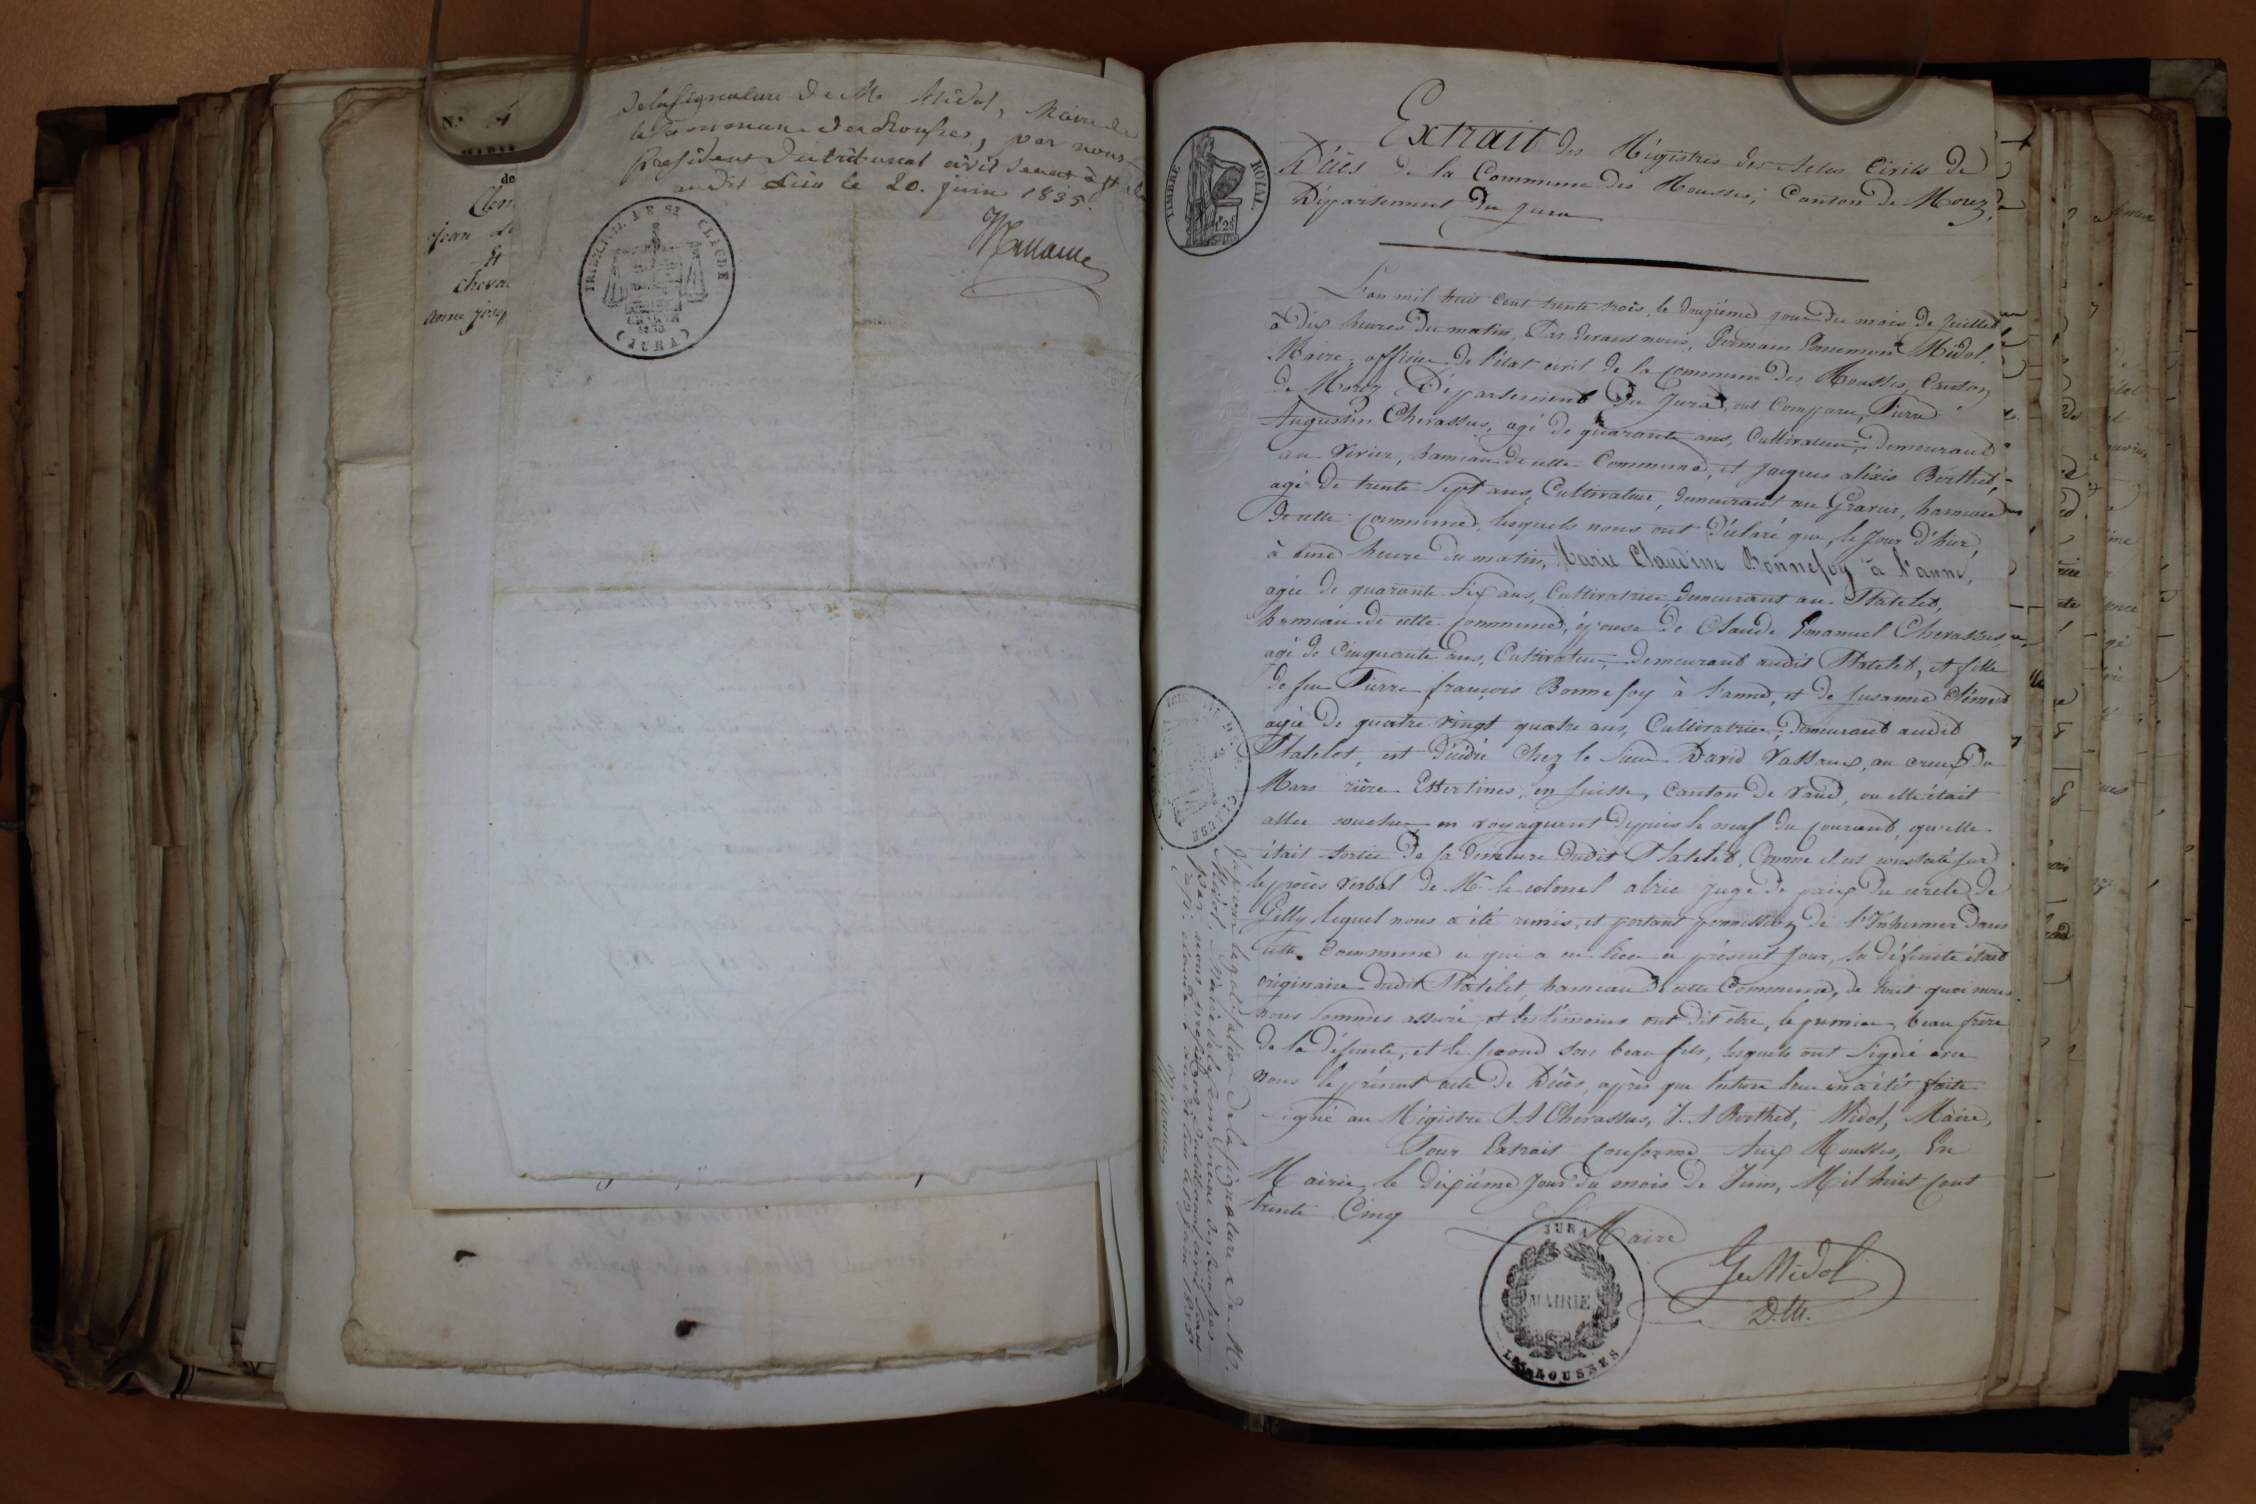 N.º 4
de
Clem
jean
et
cheva
anne jose
de la signature de Mr Midol, Maire de
la Commune des Rousses, par nous
président du tribunal civil séant à St
audit lieu le 20. juin 1835.
TRIBUNAL CIVIL DE ST CLAUDE
(JURA)
TIMBRE ROYAL
1.25
Extrait des Régistres des Actes Civils de
Décès de la Commune des Rousses, Canton de Morez,
Département du Jura
L'an mil huit cent trente trois, le douzième jour du mois de juillet
à dix heures du matin, Par devant nous, Germain Midol,
Maire, officier de l'état civil de la commune des Rousses, Canton
de Morez Département du Jura, ont Comparu, Pierre
Augustin Chevassus, agé de quarante ans, Cultivateur, demeurant
au vivier, hameau de cette Commune, et jacques aléxis Berthet,
agé de trente sept ans, Cultivateur, demeurant au Gravier, hameau
de cette Commune, lesquels nous ont déclaré que, le jour d'hier,
à une heure du matin, Marie Claudine Bonnefoy à l'anné,
agée de quarante six ans, Cultivatrice, demeurant au Platelet,
hameau de cette Commune, épouse de Claude Emanuel Chevassus,
agé de Cinquante ans, Cultivateur, demeurant audit Platelet, et fille
de feu Pierre françois Bonnefoy à l'anné, et de susanne Clément
agée de quatre vingt quatre ans, Cultivatrice, demeurant audit
Platelet, est décédée Chez le sieur David Vassaux, au creux du
Mars rière Essertines, en suisse, Canton de vaud, ou elle était
allée coucher, en voyageant depuis le neuf du courant, qu'elle
était sortie de sa demeure dudit Platelet, Comme il est constaté par
le procès verbal de Mr le colonel alric juge de paix du cercle de
Gilly lequel nous a été remis, et portant permission de l'Inhumer dans
cette Commune ce qui a eu lieu ce présent jour, la défunte étant
originaire dudit Platelet, hameau de cette Commune, de tout quoi nous
nous sommes assuré, et les témoins ont dit être, le premier, beau frère
de la défunte, et le second son beau fils, lesquels ont signé avec
nous le présent acte de Décès, après que lecture leur en a été faite
signé au Régistre P. A Chevassus, J. A Berthet, Midol, Maire,
Pour Extrait Conforme Aux Rousses, En
Mairie le dixième jour du mois de Juin, Mil huit Cent
trente Cinq
Le Maire
Ger Midol
D.M.
JURA
MAIRIE
LES ROUSSES
Vu pour légalisation de la signature de Mr.
Midol, Maire de la Commune des Rousses
par nous président du tribunal civil séant
à St. claude, audit lieu le 19 juin 1835.